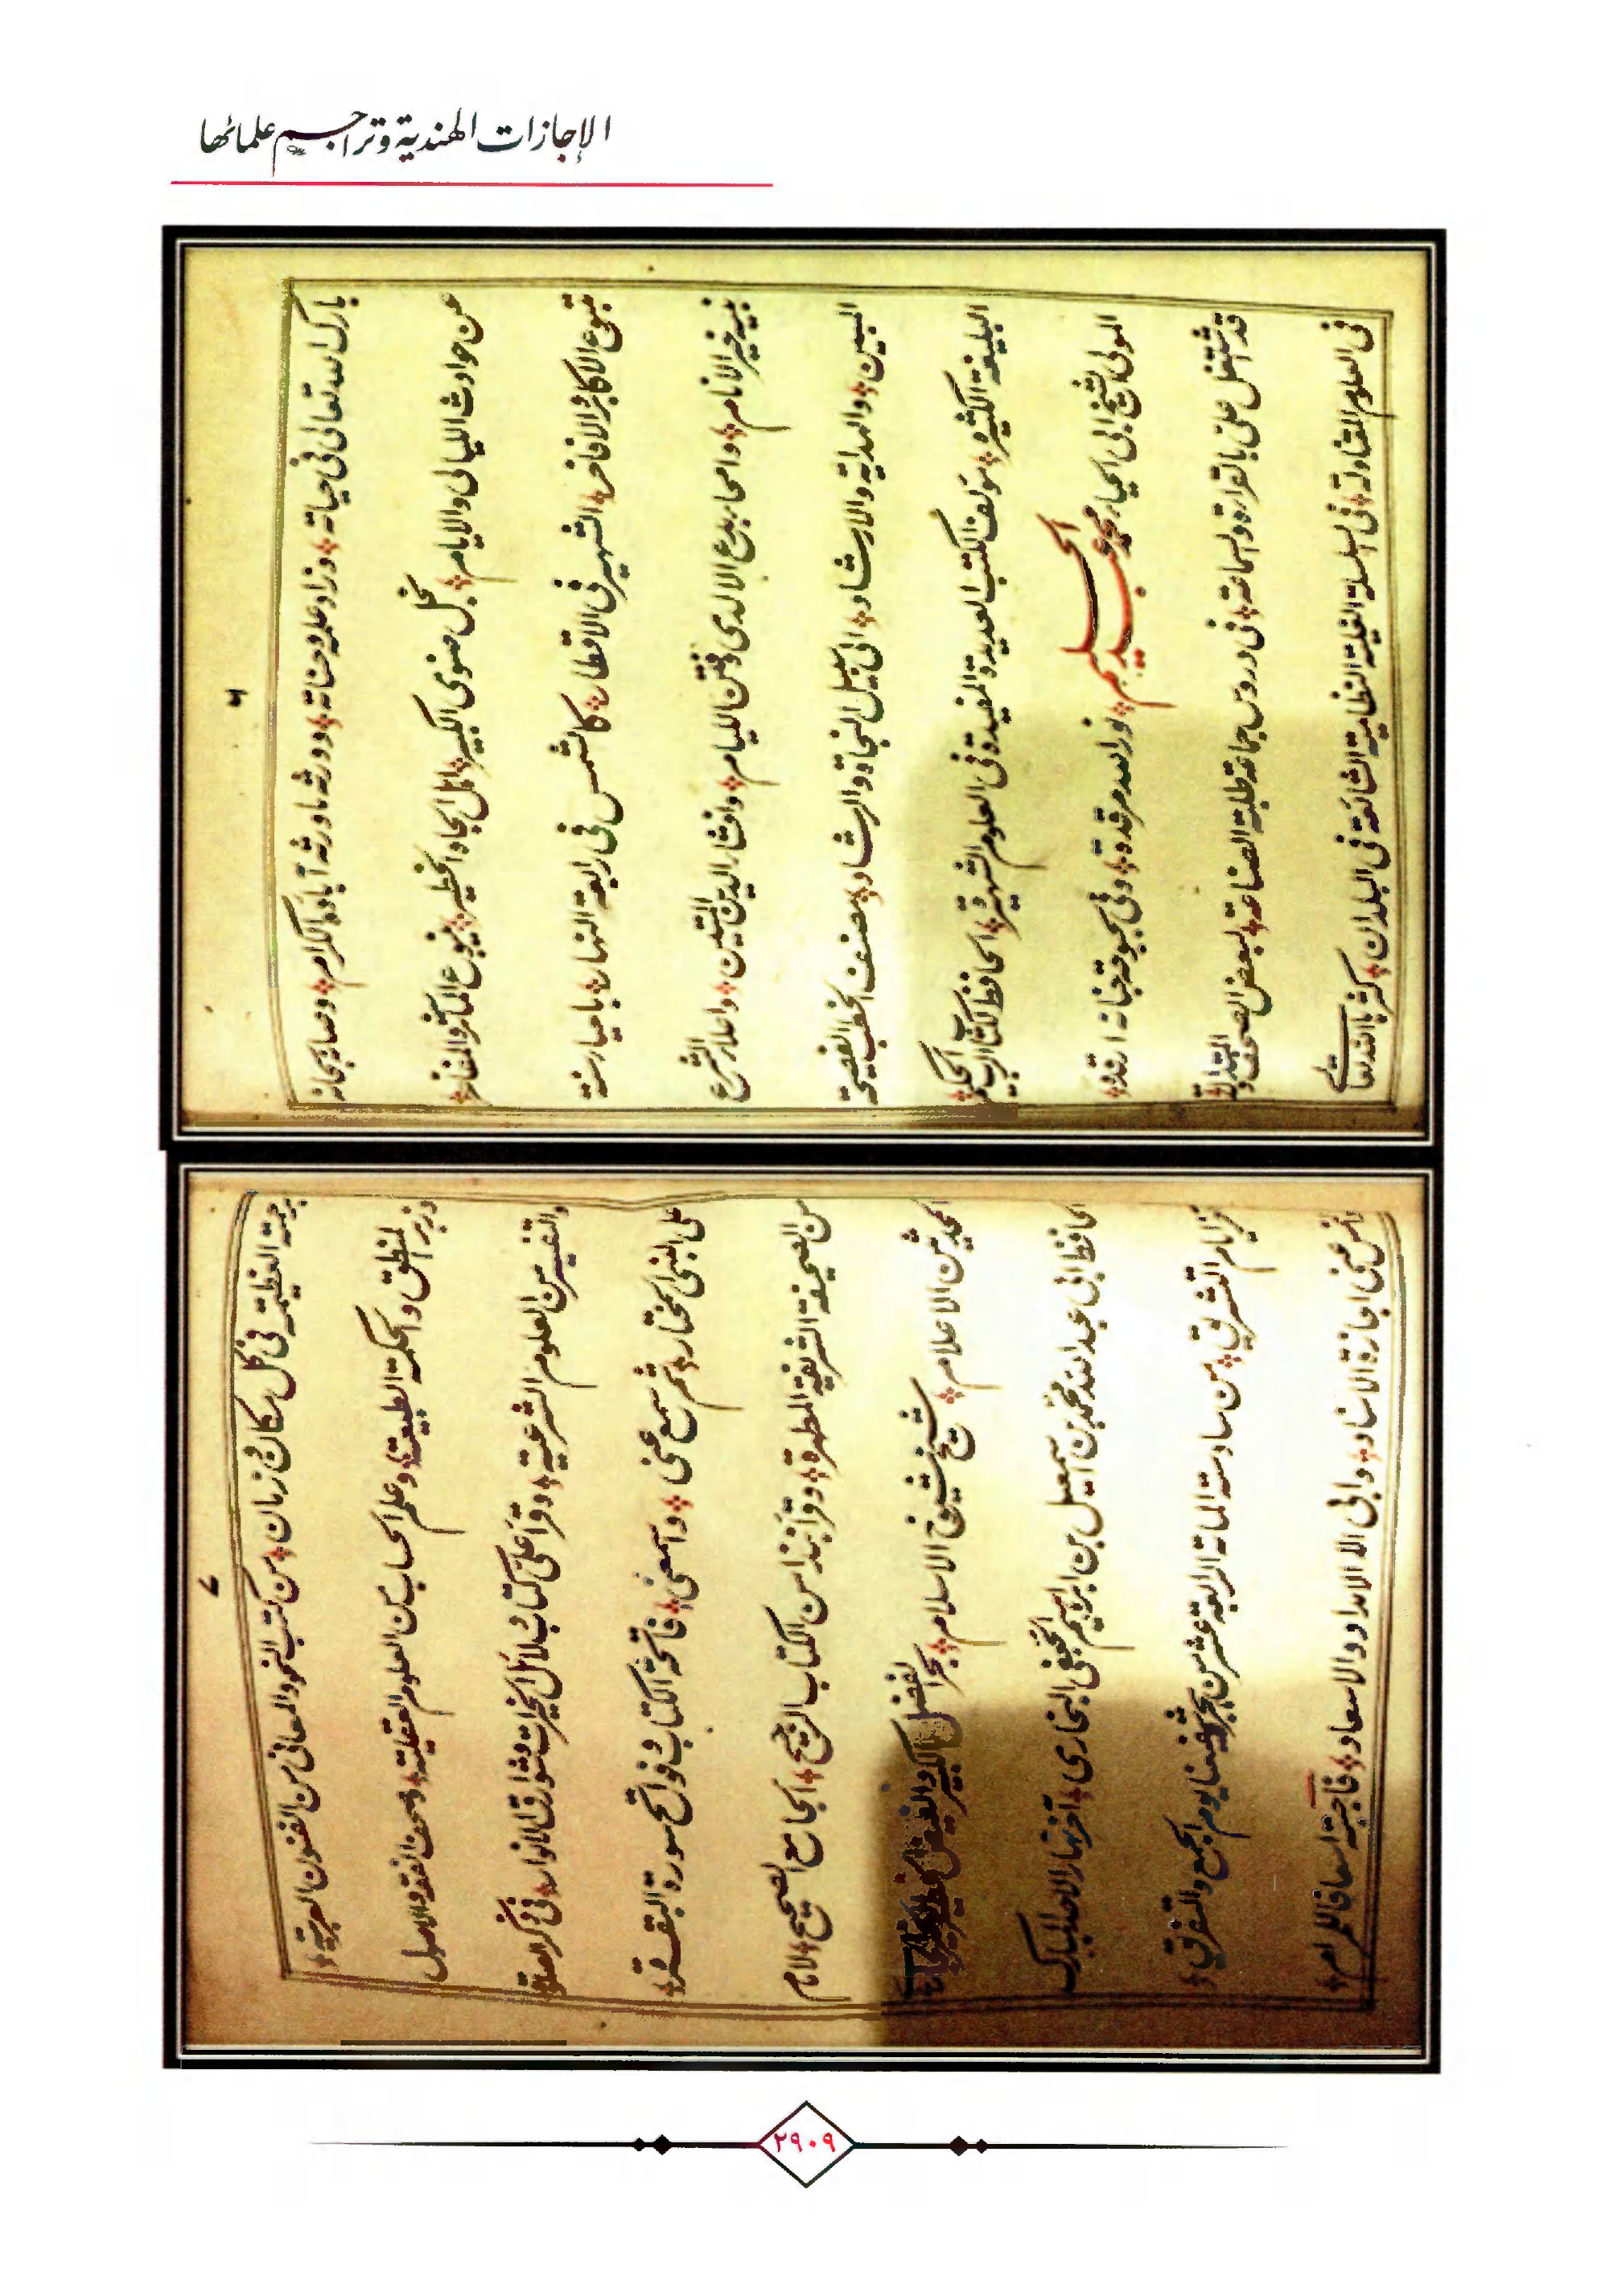 الإجازات الهندية وتراجم علمائها
٦
بارك الله تعالى في حياته وزاد علمه وحسناته وورثه ما ورثه آباؤه الكرام وصانه سبحانه
عن حوادث الليالي والايام نجل صنوي الكبير الماجد الخطير ينبوع المآثر والمفاخر
متبوع الاكابر والافاخر الشهير في الاقطار كالشمس في رابعة النهار باحياء سنة
نبيه خير الانام وامحاء بدع الالدى وفتن الليام وافشاء الدين المتين واعلاء الشرع
المبين والهداية والارشاد الى سبيل النجاة والرشاد مصنف الخطب الفصيحة
البليغة الكثيرة مؤلف الكتب العديدة المفيدة في العلوم الشهيرة الحافظ لكتاب الحكيم
المولى الشيخ ابي الحياء محمد عبد الحليم نور الله مرقده وفي بحبوحة جنانه ارقده
قد اشتغل علي بالقراءة والسماعة في دروس جماعة طلبة الصناعة لبعض الصحف المتداولة
في العلوم المتداولة في السلسلة العلية النظامية الشائعة في البلدان كثرها الله تعالى
٧
برحمته العظيمة في كل مكان وزمان من كتب النحو والمعاني من الفنون العربية
وزبر المنطق والحكمة الطبيعية وعلم الحساب من العلوم العقلية وصحف الفقه والاصول
والتفسير من العلوم الشرعية وقرأ علي كتاب دلائل الخيرات وشوارق الانوار في ذكر الصلوة
على النبي المختار ثم سمع عني واسمعني فاتحة الكتاب وفواتح سورة البقرة
من الصحيفة الشريفة المطهرة وقرأ نبذا من الكتاب الرجيح الجامع الصحيح للامام
المحدثين الاعلام شيخ شيوخ الاسلام بحر الفضل الكبير والفيض
الحافظ ابي عبد الله محمد بن اسمعيل بن ابراهيم الجعفي البخاري آخر نهار الاحد المبارك
آخر ايام التشريق من سادسة المائة الرابعة عشر من هجرة شفيعنا يوم الجمع والتفريق
والتمس عني اجازة الاسناد وابى الا الامداد والاسعاد فاجبته اسعافا للمرام
٢٩٠٩